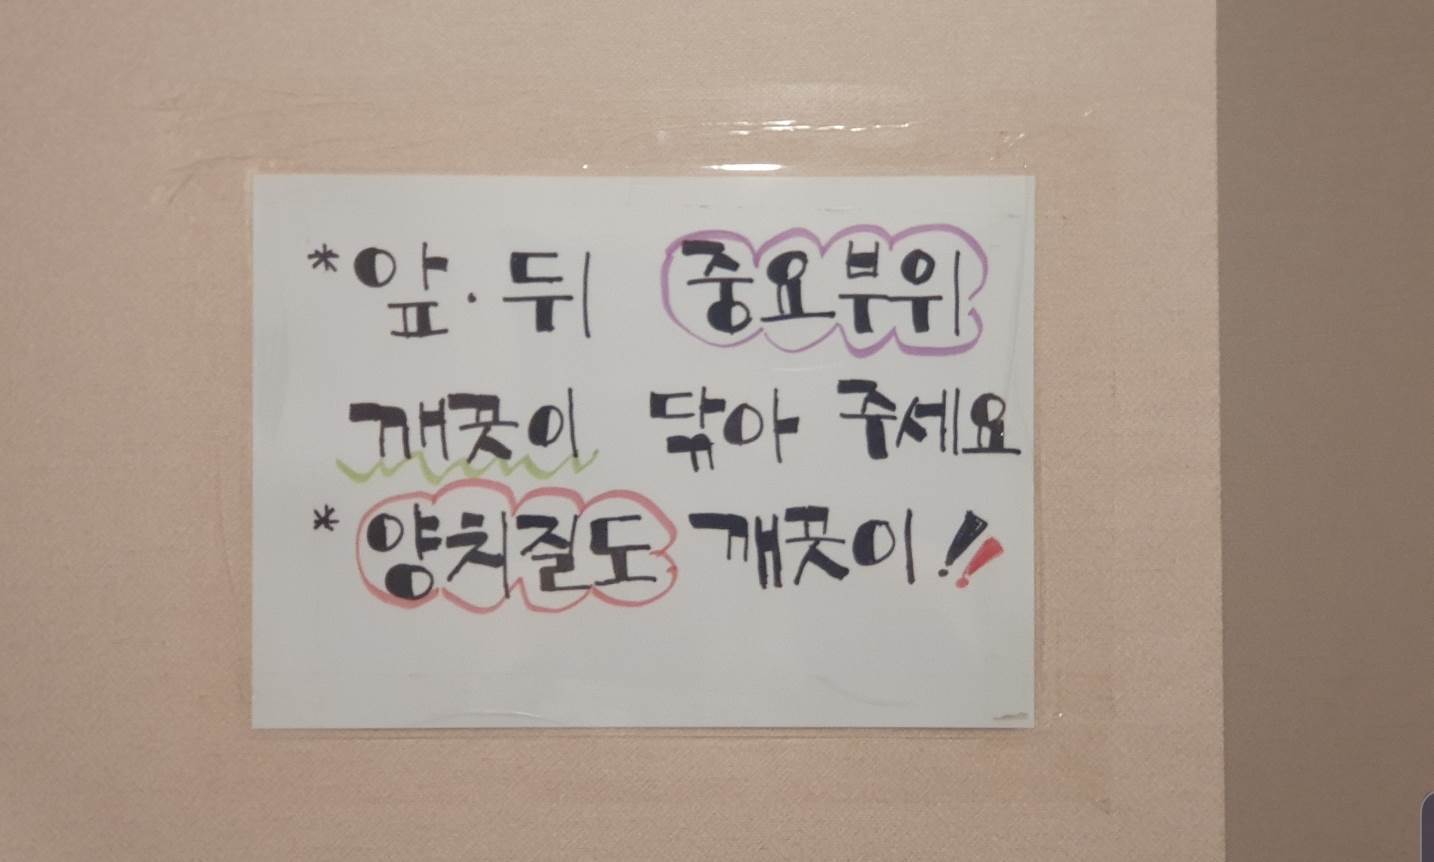 *앞·뒤 중요부위
깨끗이 닦아 주세요
*양치질도 깨끗이!!